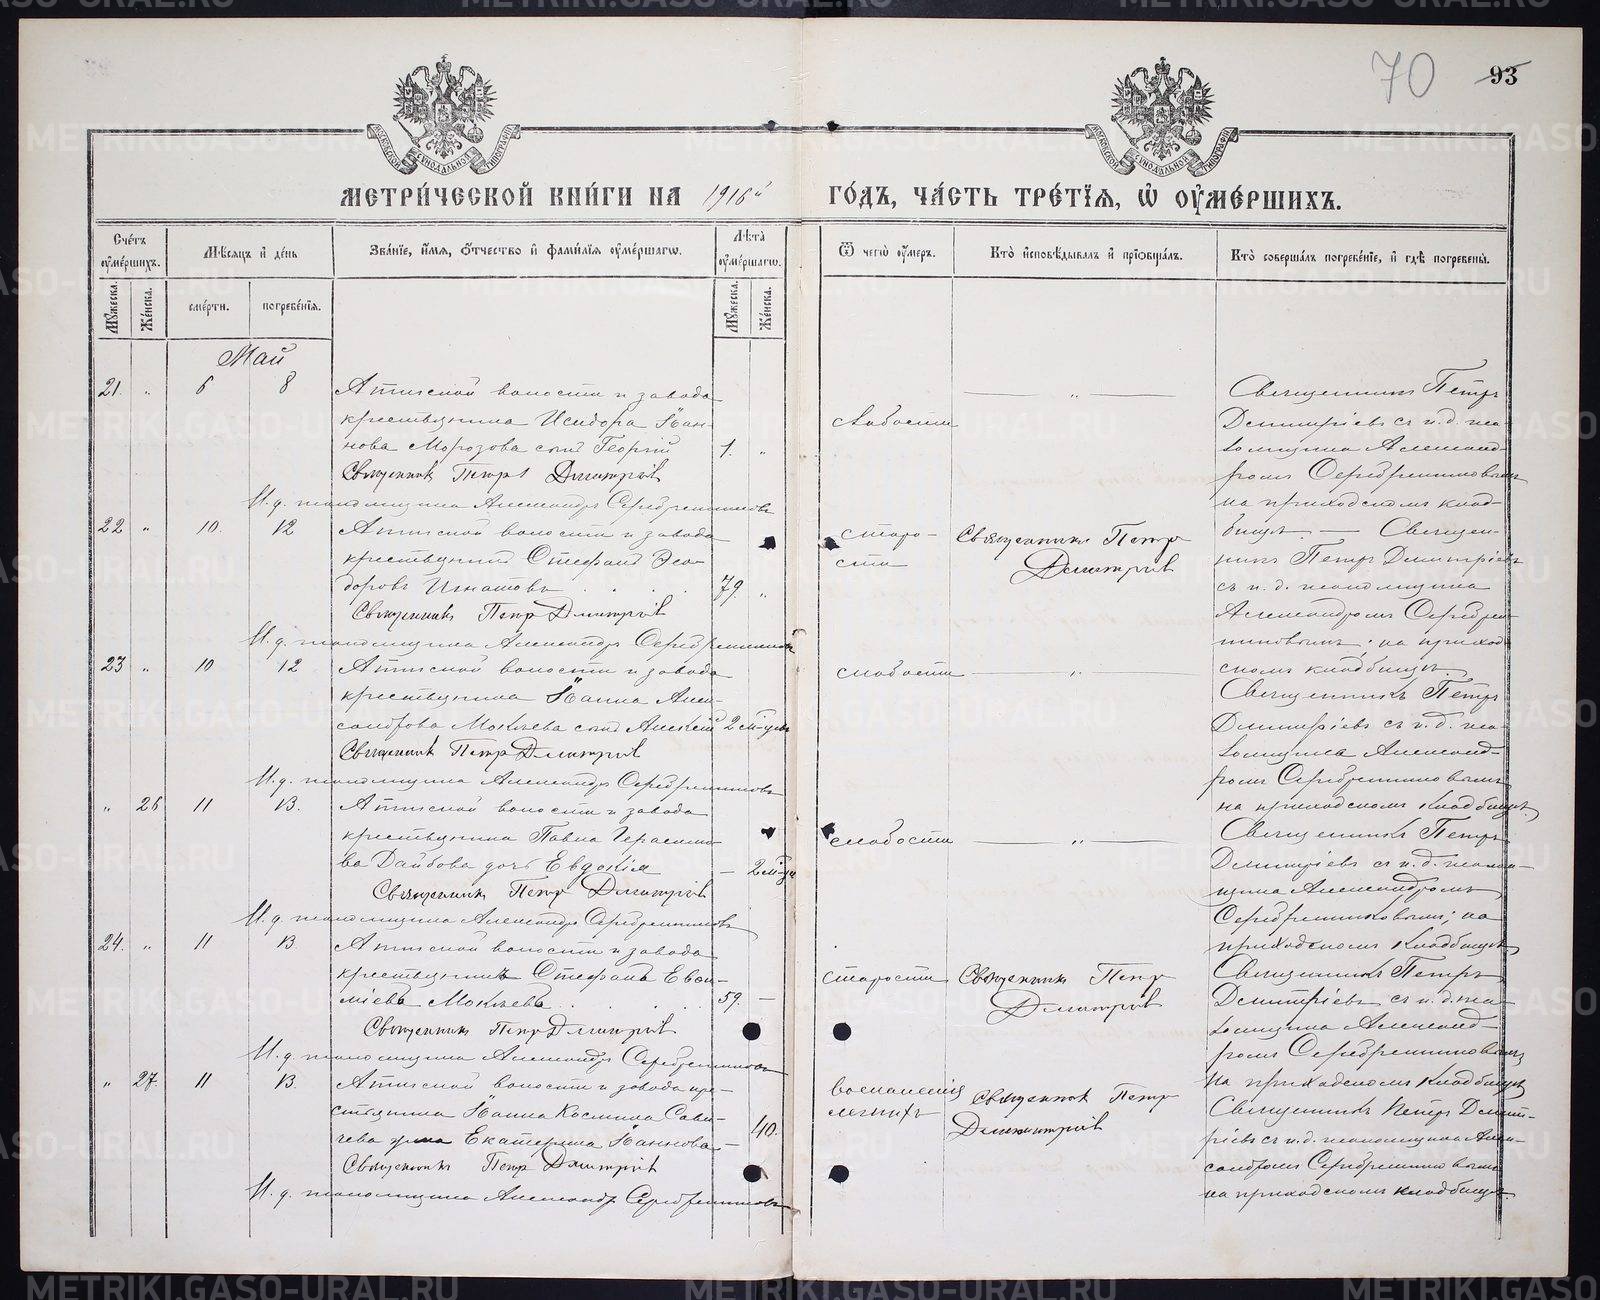 70
93
МЕТРИ́ЧЕСКОЙ КНИ́ГИ НА 1916й ГО́ДЪ, ЧА́СТЬ ТРЕ́ТІЯ, Ѡ ОУМЕ́РШИХЪ.
Сче́тъ оуме́ршихъ.
Мѣ́сяцъ и҆ де́нь
Зва́ніе, и҆́мя, ѻ҆́тчество и҆ фами́лія оуме́ршагѡ.
Лѣта̀ оуме́ршагѡ.
Ѿ чегѡ̀ оу҆́меръ.
Кто̀ и҆сповѣ́дывалъ и҆ прїѡбща́лъ.
Кто̀ соверша́лъ погребе́ніе, и҆ гдѣ̀ погребены́.
Му́жеска.
Же́нска.
сме́рти.
погребе́нія.
Му́жеска.
Же́нска.
Май
21. „ 6 8
Атигской волости и завода
крестьянина Исидора Іоан-
нова Морозова сынъ Георгій 1. „
Священникъ Петръ Димитріевъ
И. д. псаломщика Александръ Серебренниковъ
слабости
— „ —
Священникъ Петръ
Димитріевъ съ и. д. пса-
ломщика Александ-
ромъ Серебренниковымъ
на приходскомъ клад-
бищѣ.
22 „ 10. 12
Атигской волости и завода
крестьянинъ Стефанъ Ѳео-
доровъ Игнатовъ . . . . 79. „
Священникъ Петръ Димитріевъ
И. д. псаломщика Александръ Серебренниковъ
старо-
сти
Священникъ Петръ
Димитріевъ
— Священ-
никъ Петръ Димитріевъ
съ и. д. псаломщика
Александромъ Серебрен-
никовымъ; на приход-
скомъ кладбищѣ
23 „ 10 12
Атигской волости и завода
крестьянина Іоанна Алек-
сандрова сынъ Алексій 2 м-ца
Священникъ Петръ Димитріевъ
И. д. псаломщика Александръ Серебренниковъ
слабости
— „ —
Священникъ Петръ
Димитріевъ съ и. д. пса-
ломщика Александ-
ромъ Серебренниковымъ
на приходскомъ кладбищѣ.
„ 26 11 13.
Атигской волости и завода
крестьянина Павла Герасимо-
ва дочь Евдокія — 2 м-ца
Священникъ Петръ Димитріевъ
И. д. псаломщика Александръ Серебренниковъ
слабости
— „ —
Священникъ Петръ
Димитріевъ съ и. д. псалом-
щика Александромъ
Серебренниковымъ; на
приходскомъ кладбищѣ
24. „ 11 13.
Атигской волости и завода
крестьянинъ Стефанъ 59. —
Священникъ Петръ Димитріевъ
И. д. псаломщика Александръ Серебренниковъ
старости
Священникъ Петръ
Димитріевъ
Священникъ Петръ
Димитріевъ съ и. д. пса-
ломщика Александ-
ромъ Серебренниковымъ
на приходскомъ кладбищѣ
„ 27. 11 13.
Атигской волости и завода кре-
стьянина Іоанна Космина
жена Екатерина Іоаннова — 40.
Священникъ Петръ Димитріевъ
И. д. псаломщика Александръ Серебренниковъ
воспаленія
легкихъ
Священникъ Петръ
Димитріевъ
Священникъ Петръ Димит-
ріевъ съ и. д. псаломщика Алек-
сандромъ Серебренниковымъ
на приходскомъ кладбищѣ
METRIKI.GASO-URAL.RU